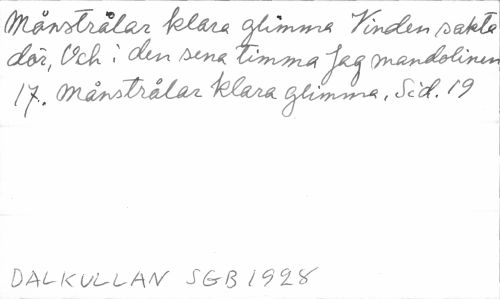 Månstrålar klara glimma Vinden sakta
dör, Och i den sena timma Jag mandolinen
17. Månstrålar klara glimma. Sid. 19
DALKULLAN SGB 1928